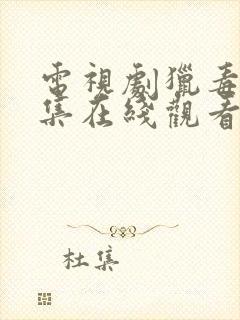 電視劇獵毒
集在綫觀看
杜集